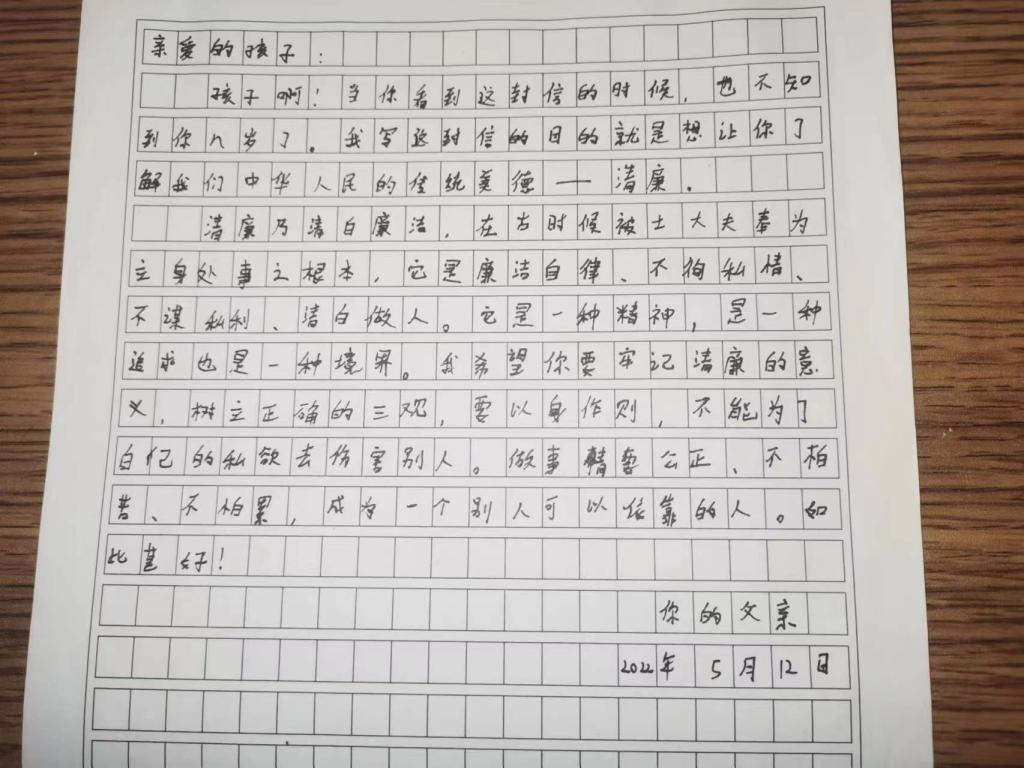 亲爱的孩子:
孩子啊!当你看到这封信的时候,也不知
到你几岁了。我写这封信的目的就是想让你了
解我们中华人民的传统美德——清廉.
清廉乃清白廉洁,在古时候被士大夫奉为
立身处事之根本,它是廉洁自律、不狥私情、
不谋私利、清白做人。它是一种精神,是一种
追求也是一种境界。我希望你要牢记清廉的意
义,树立正确的三观,要以身作则,不能为了
自己的私欲去伤害别人。做事情要公正、不怕
苦、不怕累,成为一个别人可以依靠的人。如
此甚好!
你的父亲
2022年5月12日